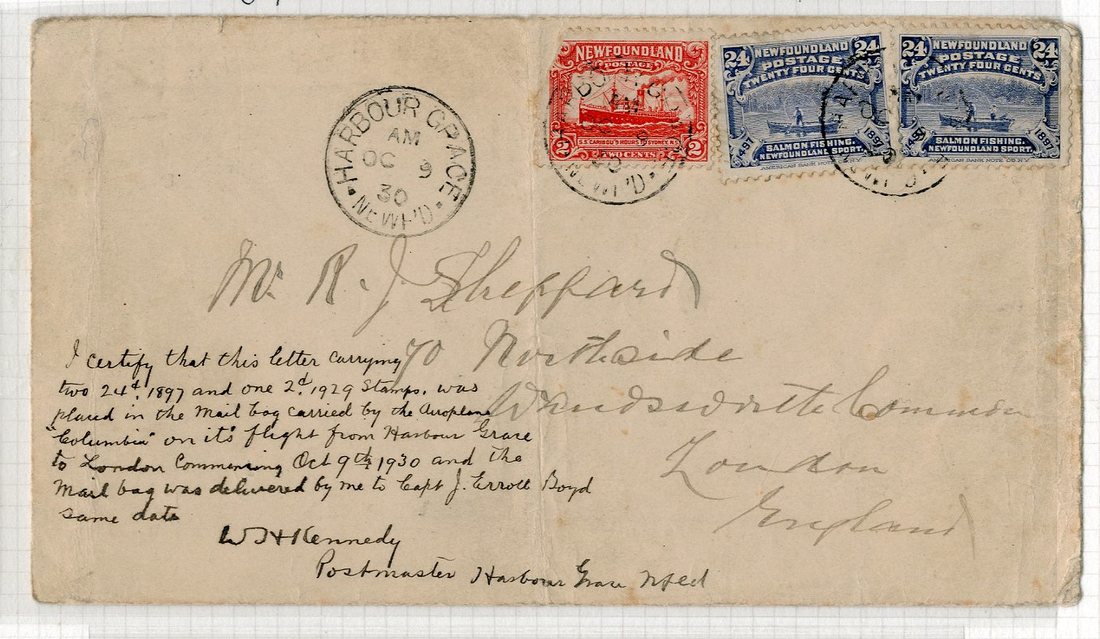 HARBOUR GRACE
AM
OC 9
30
NEWF'D
NEWFOUNDLAND
POSTAGE
2 2
S.S. CARIBOU 9 HOURS TO SYDNEY, N.S.
TWO CENTS
24 24
NEWFOUNDLAND
POSTAGE
TWENTY FOUR CENTS
1497 1897
SALMON FISHING.
NEWFOUNDLAND SPORT.
AMERICAN BANK NOTE CO. N.Y.
24 24
NEWFOUNDLAND
POSTAGE
TWENTY FOUR CENTS
1497 1897
SALMON FISHING.
NEWFOUNDLAND SPORT.
AMERICAN BANK NOTE CO. N.Y.
Mr. R. J. Sheppard
70 Northside
Wandsworth Common
London
England
I certify that this letter carrying
two 24¢. 1897 and one 2¢. 1929 Stamps. was
placed in the Mail bag carried by the Aeroplane
"Columbia" on it's flight from Harbour Grace
to London Commencing Oct 9th 1930 and the
Mail bag was delivered by me to Capt J. Erroll Boyd
same date
W H Kennedy
Postmaster Harbour Grace Nfld